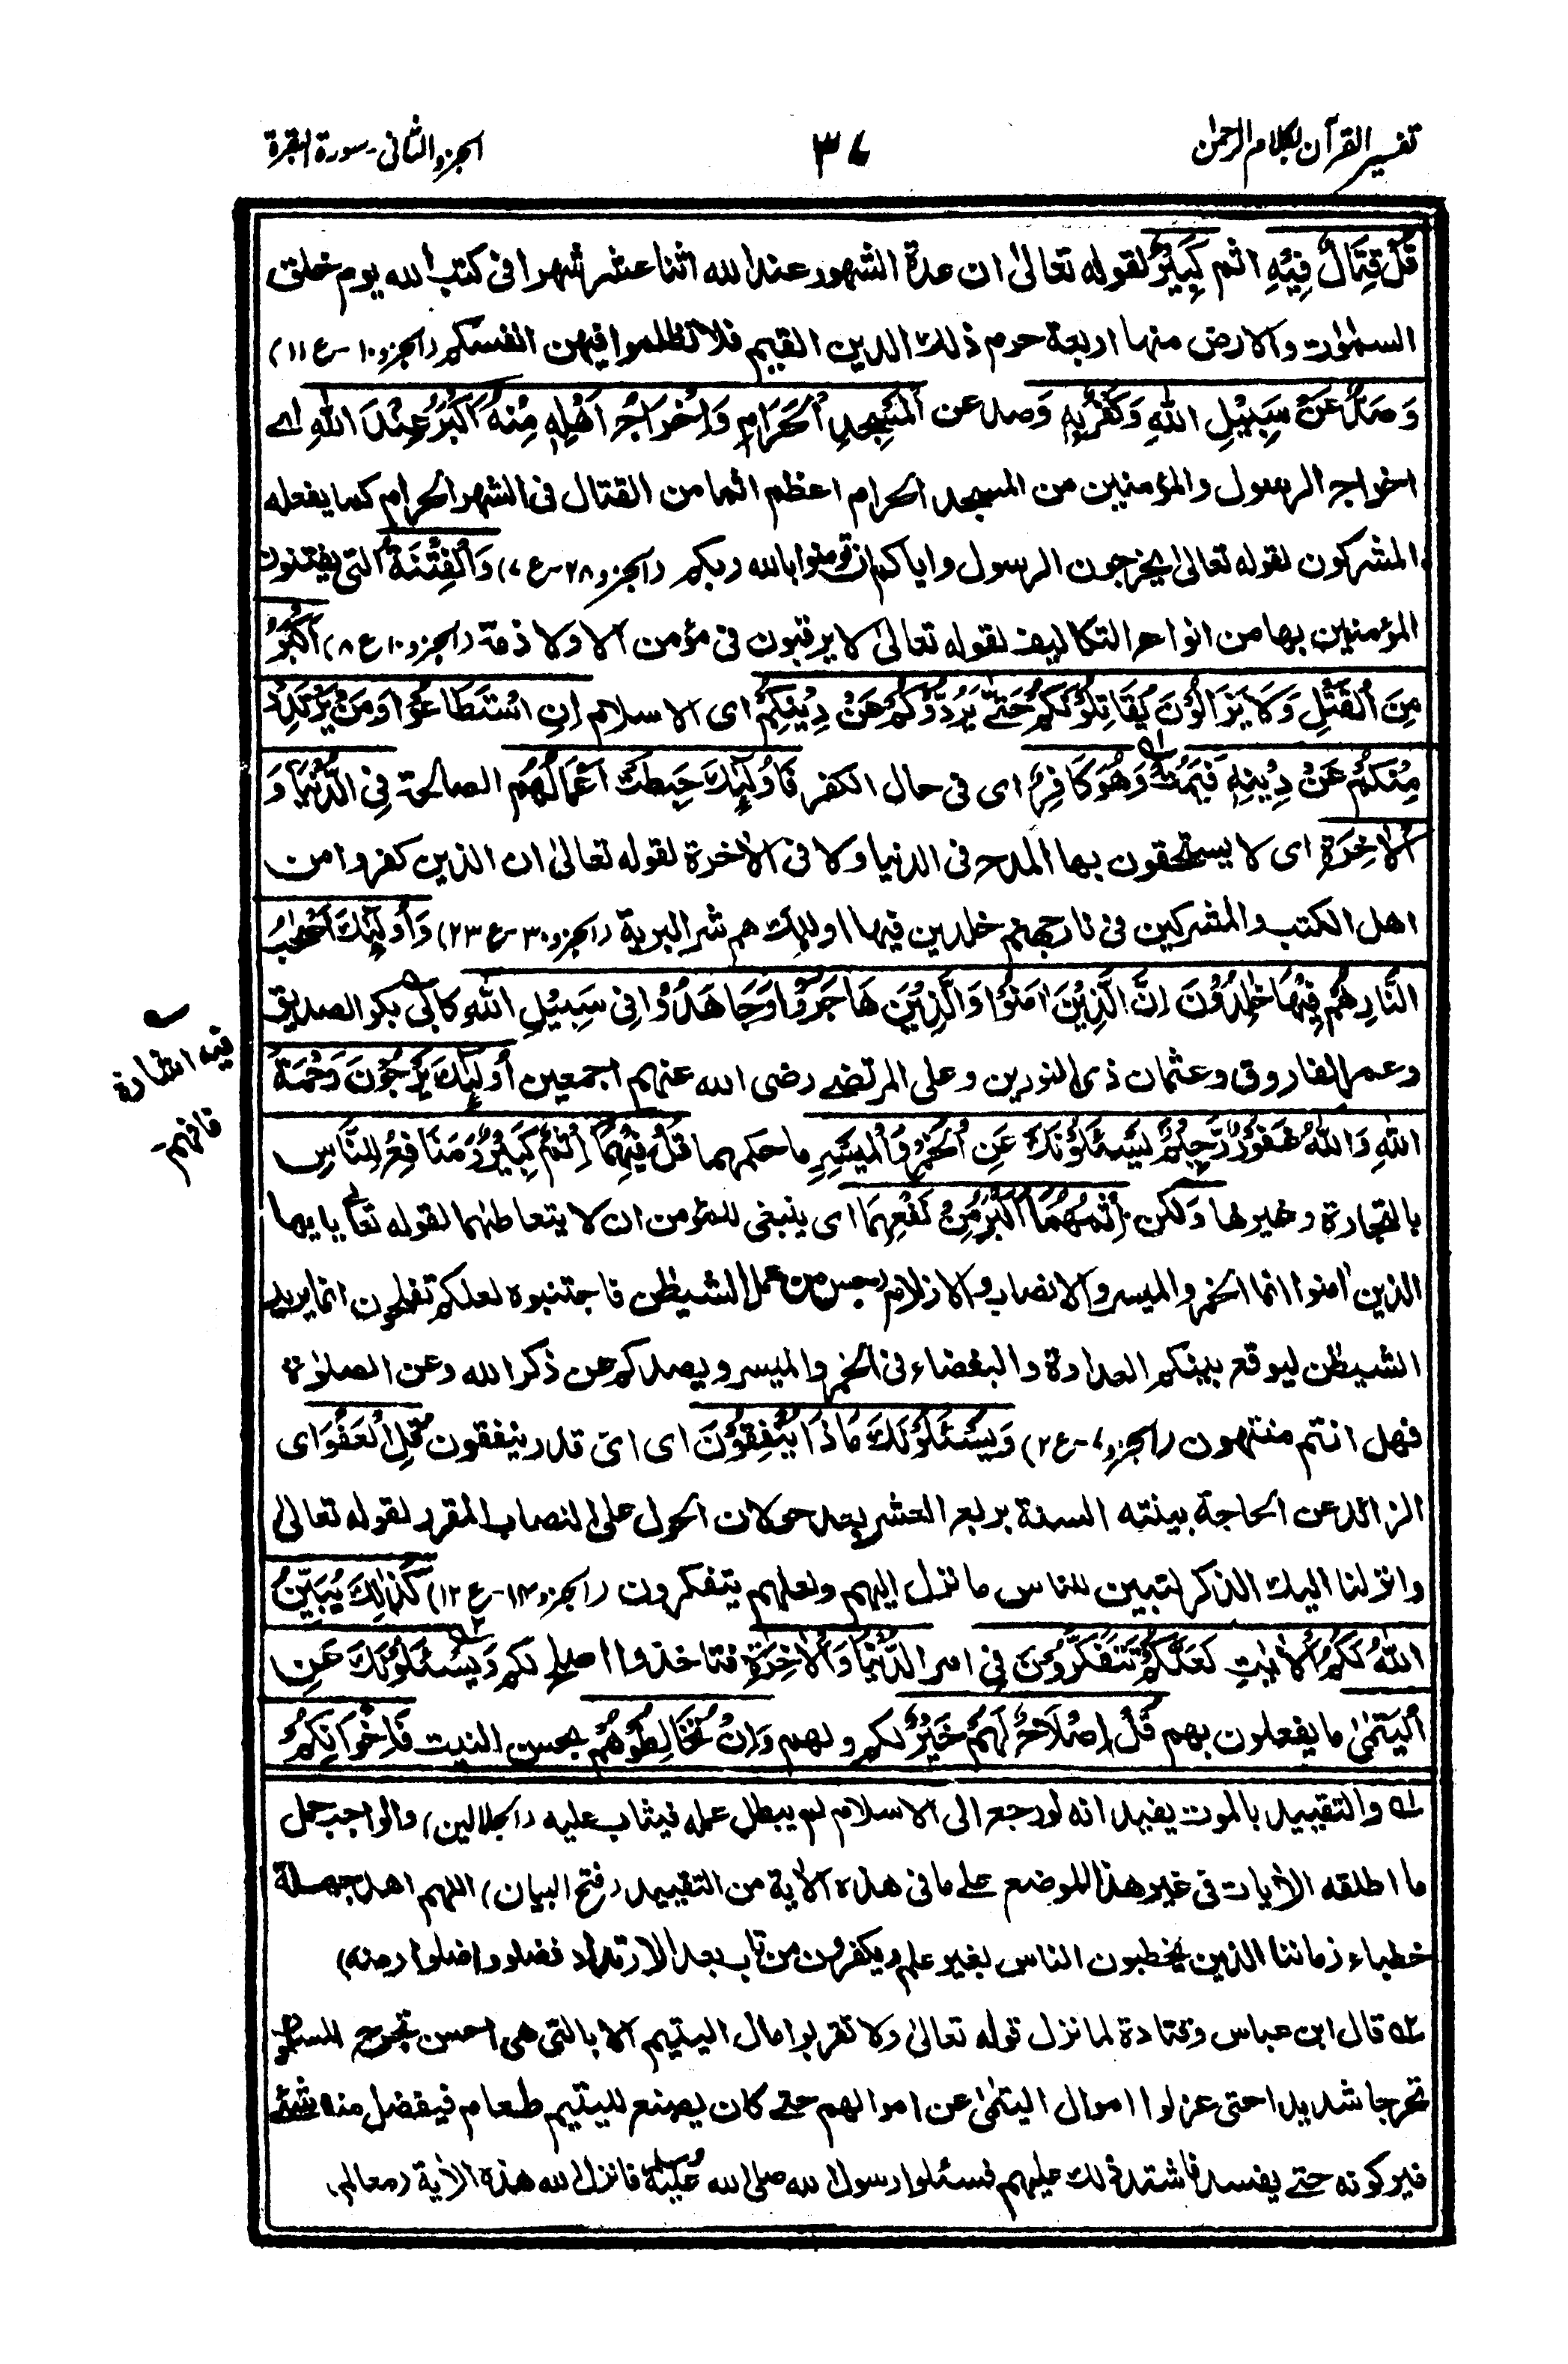 تفسير القرآن بكلام الرحمٰن
٣٧
الجزء الثانى - سورة البقرة
قُلْ قِتَالٌ فِيْهِ اثم كَبِيْرٌ لقوله تعالىٰ ان عدة الشهور عند الله اثنا عشر شهرا فى كتب الله يوم خلق
السمٰوٰت والارض منها اربعة حرم ذلك الدين القيم فلا تظلموا فيهن انفسكم (الجزء ١٠ - ع ١١)
وَصَدٌّ عَنْ سَبِيْلِ اللّٰهِ وَكُفْرٌۢ بِهٖ وَصد عن الْمَسْجِدِ الْحَرَامِ وَاِخْرَاجُ اَهْلِهٖ مِنْهُ اَكْبَرُ عِنْدَ اللّٰهِ اے
اخراج الرسول والمؤمنين من المسجد الحرام اعظم اثما من القتال فى الشهر الحرام كما يفعله
المشركون لقوله تعالىٰ يخرجون الرسول واياكم ان تؤمنوا بالله ربكم (الجزء ٢٨ - ع ٧) وَالْفِتْنَةُ التى يفتنون
المؤمنين بها من انواع التكاليف لقوله تعالىٰ لا يرقبون فى مؤمن الا ولا ذمة (الجزء ١٠ ع ٨) اَكْبَرُ
مِنَ الْقَتْلِ وَلَا يَزَالُوْنَ يُقَاتِلُوْنَكُمْ حَتّٰى يَرُدُّوْكُمْ عَنْ دِيْنِكُمْ اى الاسلام اِنِ اسْتَطَاعُوْا وَمَنْ يَّرْتَدِدْ
مِنْكُمْ عَنْ دِيْنِهٖ فَيَمُتْ وَهُوَ كَافِرٌ اى فى حال الكفر فَاُولٰٓئِكَ حَبِطَتْ اَعْمَالُهُمْ الصالحة فِى الدُّنْيَا وَ
الْاٰخِرَةِ اى لا يستحقون بها المدح فى الدنيا ولا فى الاٰخرة لقوله تعالىٰ ان الذين كفروا من
اهل الكتب والمشركين فى نار جهنم خلدين فيها اولٰئك هم شر البرية (الجزء ٣٠ - ع ٢٣) وَاُولٰٓئِكَ اَصْحٰبُ
النَّارِ هُمْ فِيْهَا خٰلِدُوْنَ اِنَّ الَّذِيْنَ اٰمَنُوْا وَالَّذِيْنَ هَاجَرُوْا وَجَاهَدُوْا فِىْ سَبِيْلِ اللّٰهِ كابى بكر الصديق
وعمر الفاروق وعثمان ذى النورين وعلى المرتضے رضى الله عنهم اجمعين اُولٰٓئِكَ يَرْجُوْنَ رَحْمَةَ
اللّٰهِ وَاللّٰهُ غَفُوْرٌ رَّحِيْمٌ يَسْئَلُوْنَكَ عَنِ الْخَمْرِ وَالْمَيْسِرِ ما حكمهما قُلْ فِيْهِمَا اِثْمٌ كَبِيْرٌ وَّمَنَافِعُ لِلنَّاسِ
بالتجارة وغيرها وَلكن اِثْمُهُمَا اَكْبَرُ مِنْ نَّفْعِهِمَا اى ينبغى للمؤمن ان لا يتعاطهما لقوله تعالىٰ يايها
الذين اٰمنوا انما الخمر والميسر والانصاب والازلام رجس من عمل الشيطٰن فاجتنبوه لعلكم تفلحون انما يريد
الشيطٰن ليوقع بينكم العداوة والبغضاء فى الخمر والميسر ويصدكم عن ذكر الله وعن الصلوٰة
فهل انتم منتهون (الجزء ٧ - ع ٢) وَيَسْئَلُوْنَكَ مَاذَا يُنْفِقُوْنَ اى اىّ قدر ينفقون قُلِ الْعَفْوَ اى
الزائد عن الحاجة بينته السنة بربع العشر بعد حولان الحول على النصاب المقرر لقوله تعالى
وانزلنا اليك الذكر لتبين للناس ما نزل اليهم ولعلهم يتفكرون (الجزء ١٤ - ع ١٢) كَذٰلِكَ يُبَيِّنُ
اللّٰهُ لَكُمُ الْاٰيٰتِ لَعَلَّكُمْ تَتَفَكَّرُوْنَ فِى امر الدُّنْيَا وَالْاٰخِرَةِ فتاخذوا اصلح لكم وَيَسْئَلُوْنَكَ عَنِ
الْيَتٰمٰى ما يفعلون بهم قُلْ اِصْلَاحٌ لَّهُمْ خَيْرٌ لكم ولهم وَاِنْ تُخَالِطُوْهُمْ بحسن النيت فَاِخْوَانُكُمْ
فيه اشارة
فافهم
١ والتقييد بالموت يفيد انه لو رجع الى الاسلام لم يبطل عمله فيثاب عليه (الجلالين) والواجب حمل
ما اطلقه الاٰيات فى غير هذا الموضع علے ما فى هذه الاٰية من التقييد (فتح البيان) اللهم اهد جهلة
خطباء زماننا الذين يخطبون الناس بغير علم ويكفرون من تاب بعد الارتداد فضلوا واضلوا (منه)
٢ قال ابن عباس وقتادة لما نزل قوله تعالىٰ ولا تقربوا مال اليتيم الا بالتى هى احسن تحرج المسلمون
تحرجا شديدا حتى عزلوا اموال اليتٰمٰى عن اموالهم حتے كان يصنع لليتيم طعام فيفضل منه شئے
فيركونه حتے يفسد فاشتد ذلك عليهم فسئلوا رسول الله صلى الله عليه فانزل الله هذه الاٰية (معالم)